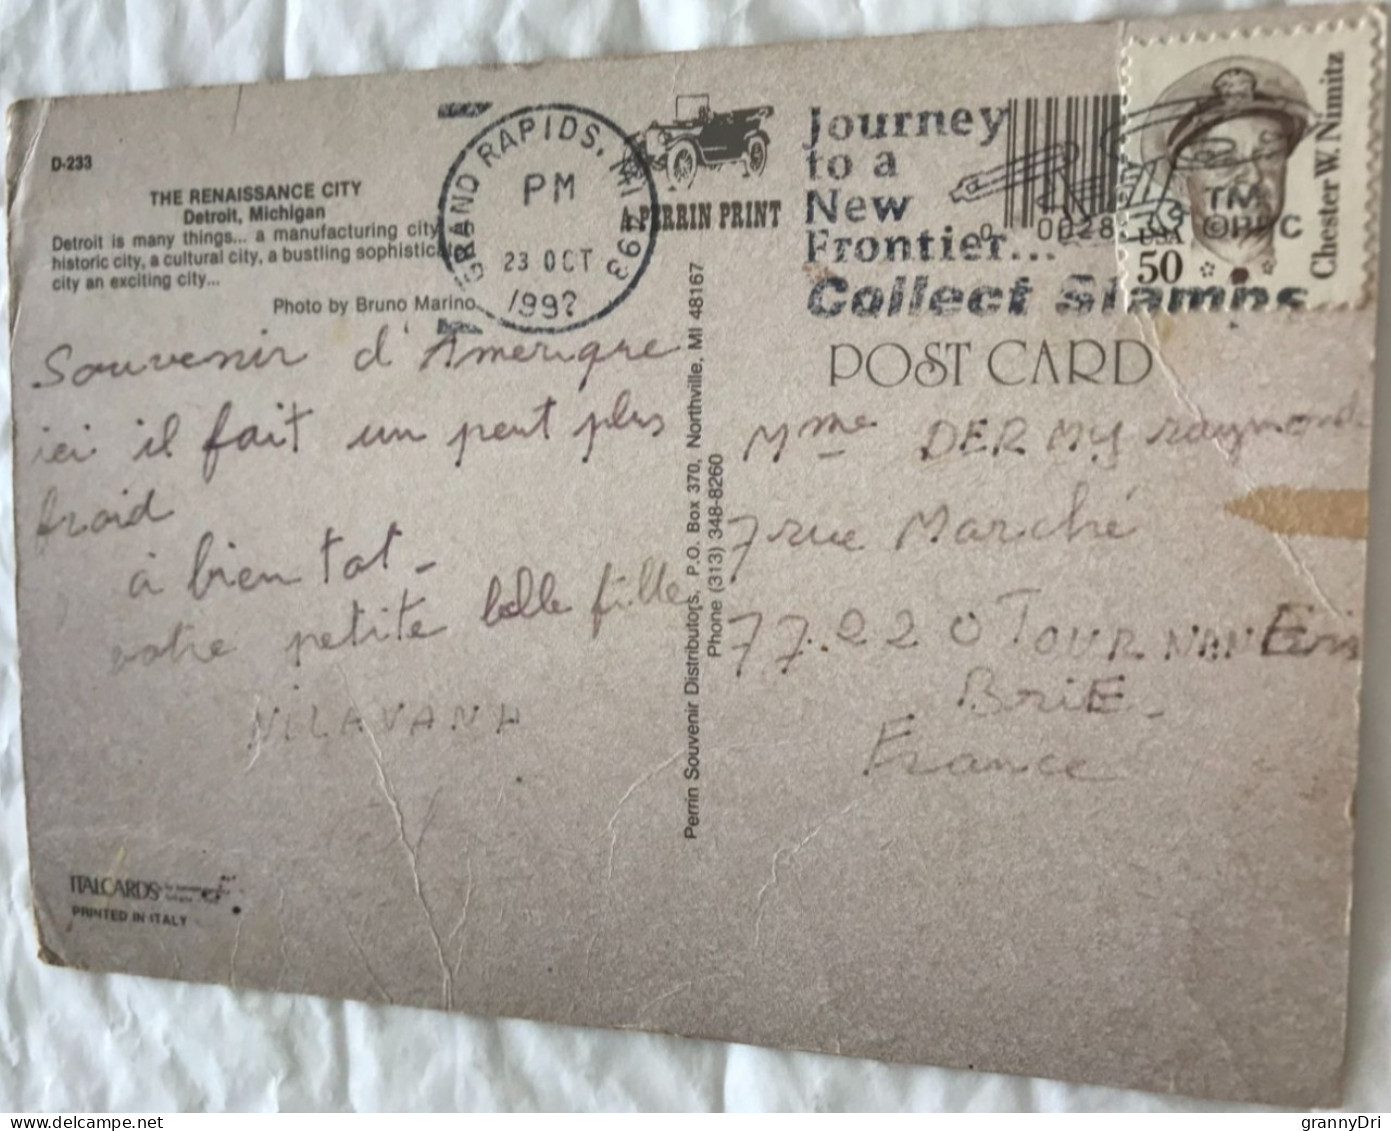 D-233
THE RENAISSANCE CITY
Detroit, Michigan
Detroit is many things... a manufacturing city
historic city, a cultural city, a bustling sophistica
city an exciting city...
Photo by Bruno Marino
GRAND RAPIDS, MI 493
PM
23 OCT
199?
A PERRIN PRINT
Journey
to a
New
Frontier...
Collect Stamps
0 0028
TM
©BPC
USA
50
Chester W. Nimitz
POST CARD
Souvenir d'Amerique
ici il fait un peut plus
froid
à bien tot-
votre petite belle fille
NILAVANH
Perrin Souvenir Distributors, P.O. Box 370, Northville, MI 48167
Phone (313) 348-8260
Mme DERMY raymonde
7 rue Marché
77.220 TOURNAN En
BriE-
France
ITALCARDS
PRINTED IN ITALY
grannyDri